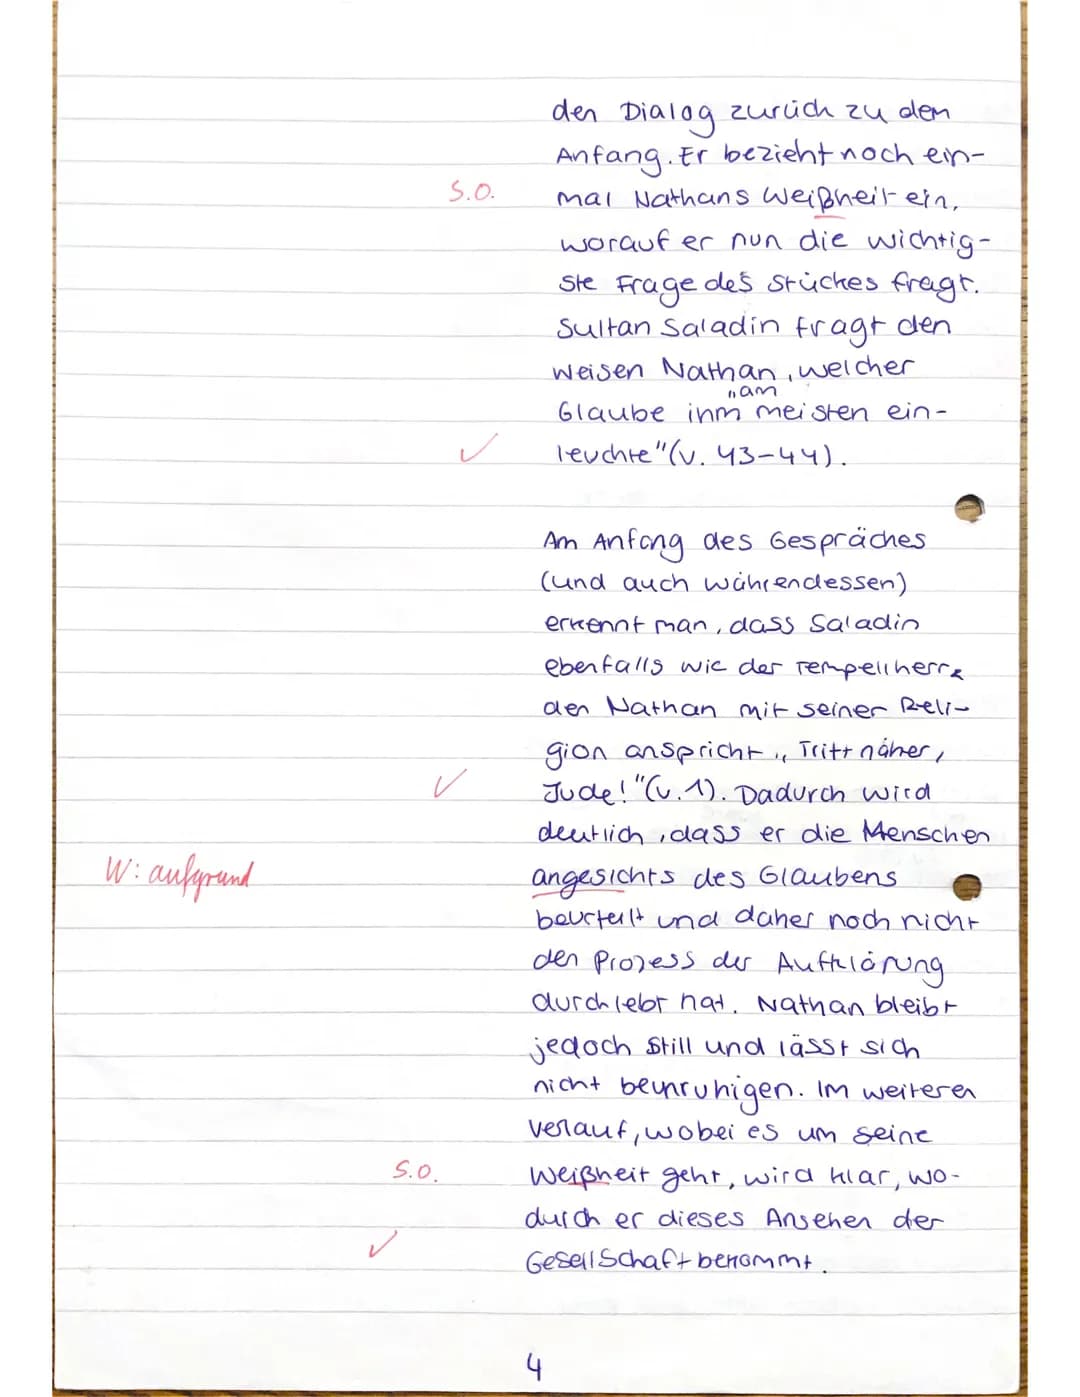 den Dialog zurück zu dem
Anfang. Er bezieht noch ein-
S.O. mal Nathans Weißheit ein,
worauf er nun die wichtig-
ste Frage des Stückes fragt.
Sultan Saladin fragt den
weisen Nathan, welcher
"am
Glaube ihm meisten ein-
✓ leuchte" (v. 43-44).
Am Anfang des Gespräches
(und auch währendessen)
erkennt man, dass Saladin
ebenfalls wie der Tempellherr
den Nathan mit seiner Reli-
gion anspricht „Tritt näher,
✓ Jude!" (v. 1). Dadurch wird
deutlich, dass er die Menschen
W: aufgrund angesichts des Glaubens
beurteilt und daher noch nicht
den Prozess der Aufklärung
durchlebt hat. Nathan bleibt
jedoch still und lässt sich
nicht beunruhigen. Im weiteren
verlauf, wobei es um seine
S.O. Weißheit geht, wird klar, wo-
durch er dieses Ansehen der
✓ Gesellschaft bekommt.
4